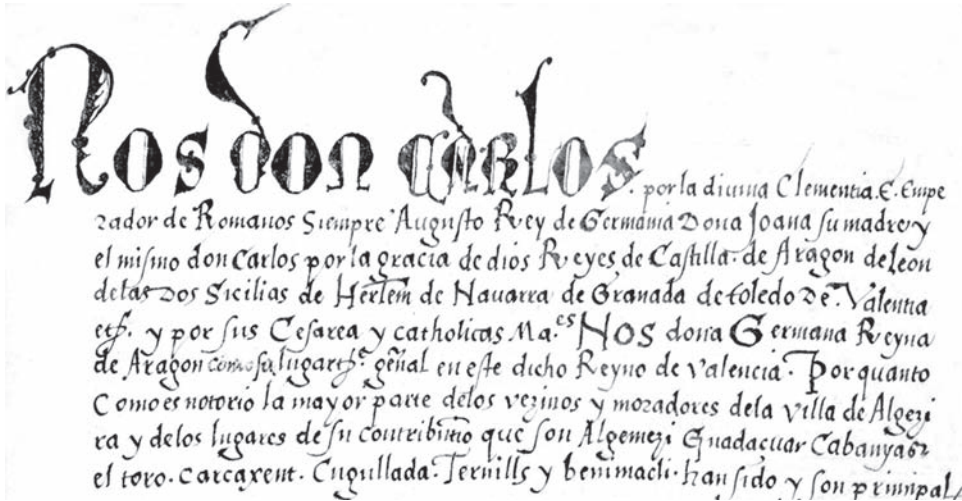 Nos don carlos. por la divina Clementia. E. Empe
rador de Romanos Siempre Augusto Rey de Germania Dona Joana su madre y
el mismo don Carlos por la gracia de dios Reyes de Castilla. de Aragon de leon
delas Dos Sicilias de Hẽrlem de Navarra de Granada de toledo De Valentia
etc̃. y por sus Cesarea y catholicas Ma.es Nos dona Germana Reyna
de Aragon como su lugarte gñal en este dicho Reyno de valencia. Por quanto
Como es notorio la mayor parte delos vezinos y moradores dela villa de Algezi
ra y delos lugares de su que son Algemezi Guadaçuar Cabanyas
el toro. carcaxent. Cugullada. Ternills y benimacli. han sido y son prinipal